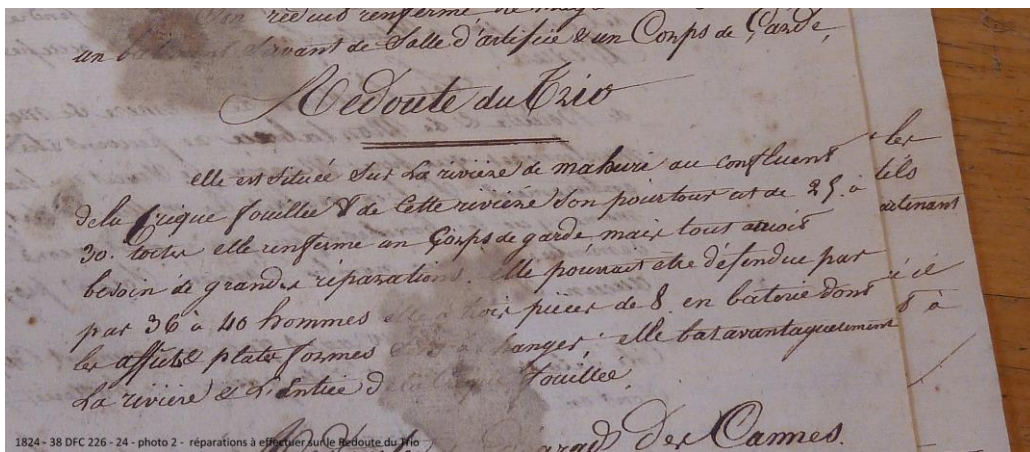 réduit renferme
un bâtiment Servant de Salle d'artifice & un Corps de Garde,
Redoute du Trio
elle est située Sur La riviere de mahuri au confluent
dela Crique fouillée & de Cette riviére Son pourtour est de 25. à
30. toises elle renferme un Corps de garde mais tout auroit
besoin de grandes réparations. elle pourrait etre défendue par
par 36 à 40 hommes elle a trois pièces de 8. en baterie dont
les affuts & plates formes sont à changer, elle bat avantageusement
La riviere & L'entrée de la Crique fouillée.
des Cannes.
1824 - 38 DFC 226 - 24 - photo 2 - réparations à effectuer sur le Redoute du Trio